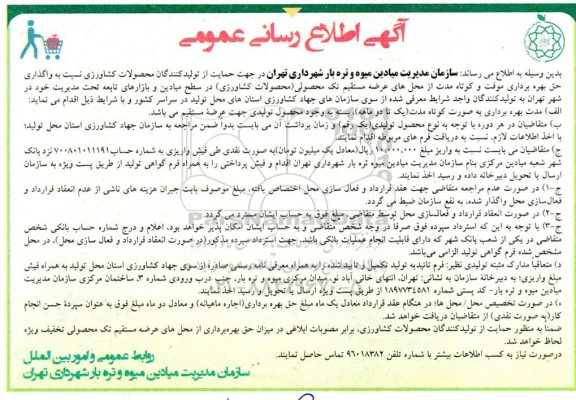 آگهی اطلاع رسانی عمومی
بدین وسیله به اطلاع می رساند: سازمان مدیریت میادین میوه و تره بار شهرداری تهران در جهت حمایت از تولیدکنندگان محصولات کشاورزی نسبت به واگذاری
حق بهره برداری موقت و کوتاه مدت از محل های عرضه مستقیم تک محصولی(محصولات کشاورزی) در سطح میادین و بازارهای تابعه تحت مدیریت خود در
شهر تهران به تولیدکنندگان واجد شرایط معرفی شده از سوی سازمان های جهاد کشاورزی استان های محل تولید در سراسر کشور و با شرایط ذیل اقدام می نماید:
الف) مدت بهره برداری به صورت کوتاه مدت(یک تا دو ماهه) بسته به وجود محصول تولیدی جهت عرضه مستقیم می باشد.
ب) متقاضیان در هر دوره با توجه به نوع محصول تولیدی(یک رقم) و زمان برداشت آن می بایست بدوا ضمن مراجعه به سازمان جهاد کشاورزی استان محل تولید؛
با اخذ اطلاعات لازم، نسبت به دریافت فرم های مربوطه اقدام نمایند.
ج) متقاضیان می بایست نسبت به واریز مبلغ ۱۰،۰۰۰،۰۰۰ ریال(معادل یک میلیون تومان)به صورت نقدی طی فیش واریزی به شماره حساب ۷۰۰۸۰۱۰۱۱۱۹۱ نزد بانک
شهر شعبه میادین مرکزی بنام سازمان مدیریت میادین میوه تره بار شهرداری تهران اقدام و فیش پرداختی را به همراه فرم گواهی تولید از طریق پست ویژه به سازمان
ارسال یا تحویل دبیرخانه داده و رسید اخذ نمایند.
ج-۱) در صورت عدم مراجعه متقاضی جهت عقد قرارداد و فعال سازی محل اختصاص یافته، مبلغ موصوف بابت جبران هزینه های ناشی از عدم انعقاد قرارداد و
فعال‌سازی محل واگذار شده، به نفع سازمان ضبط می گردد.
ج-۲) در صورت انعقاد قرارداد و فعالسازی محل توسط متقاضی، مبلغ فوق به حساب ایشان مسترد می گردد.
ج-۳) با توجه به این که استرداد سپرده فوق صرفا در وجه شخص متقاضی و به حساب ایشان امکان پذیر خواهد بود، اعلام و درج شماره حساب بانکی شخص
متقاضی در یکی از شعب بانک شهر که دارای قابلیت انجام عملیات بانکی باشد، جهت استرداد سپرده مذکور(در صورت انعقاد قرارداد و فعال سازی محل)، در محل
مشخص شده فرم گواهی تولید الزامی می‌باشد.
د) متعاقبا مدارک مثبته تولیدی نظیر: فرم تائیدیه تولید تکمیل و تائید شده ، را به همراه معرفی نامه رسمی صادره از سوی جهاد کشاورزی استان محل تولید به همراه فیش
مبلغ واریزی؛ به دبیرخانه سازمان به نشانی: تهران، انتهای خانی آباد نو، میدان مرکزی میوه و تره بار، جنب درب ورودی شماره ۳، ساختمان مرکزی سازمان مدیریت
میادین میوه و تره بار- کد پستی شماره ۱۸۹۷۷۳۴۵۸۱ از طریق پست ویژه ارسال یا تحویل و رسید اخذ نمایند.
ه) در صورت تخصیص محل/ محل ها؛ در هنگام عقد قرارداد معادل یک ماه مبلغ حق بهره برداری(اجاره ماهیانه) و معادل دو ماه مبلغ فوق به عنوان سپرده حسن انجام
کار(به صورت نقدی) از متقاضیان دریافت خواهد شد.
ضمنا به منظور حمایت از تولیدکنندگان محصولات کشاورزی، برابر مصوبات ابلاغی در میزان حق بهره‌برداری از محل های عرضه مستقیم تک محصولی تخفیف ویژه
لحاظ خواهد شد.
درصورت نیاز به کسب اطلاعات بیشتر با شماره تلفن ۹۶۰۱۸۳۸۲ تماس حاصل نمایند.
روابط عمومی و امور بین الملل
سازمان مدیریت میادین میوه و تره بار شهرداری تهران